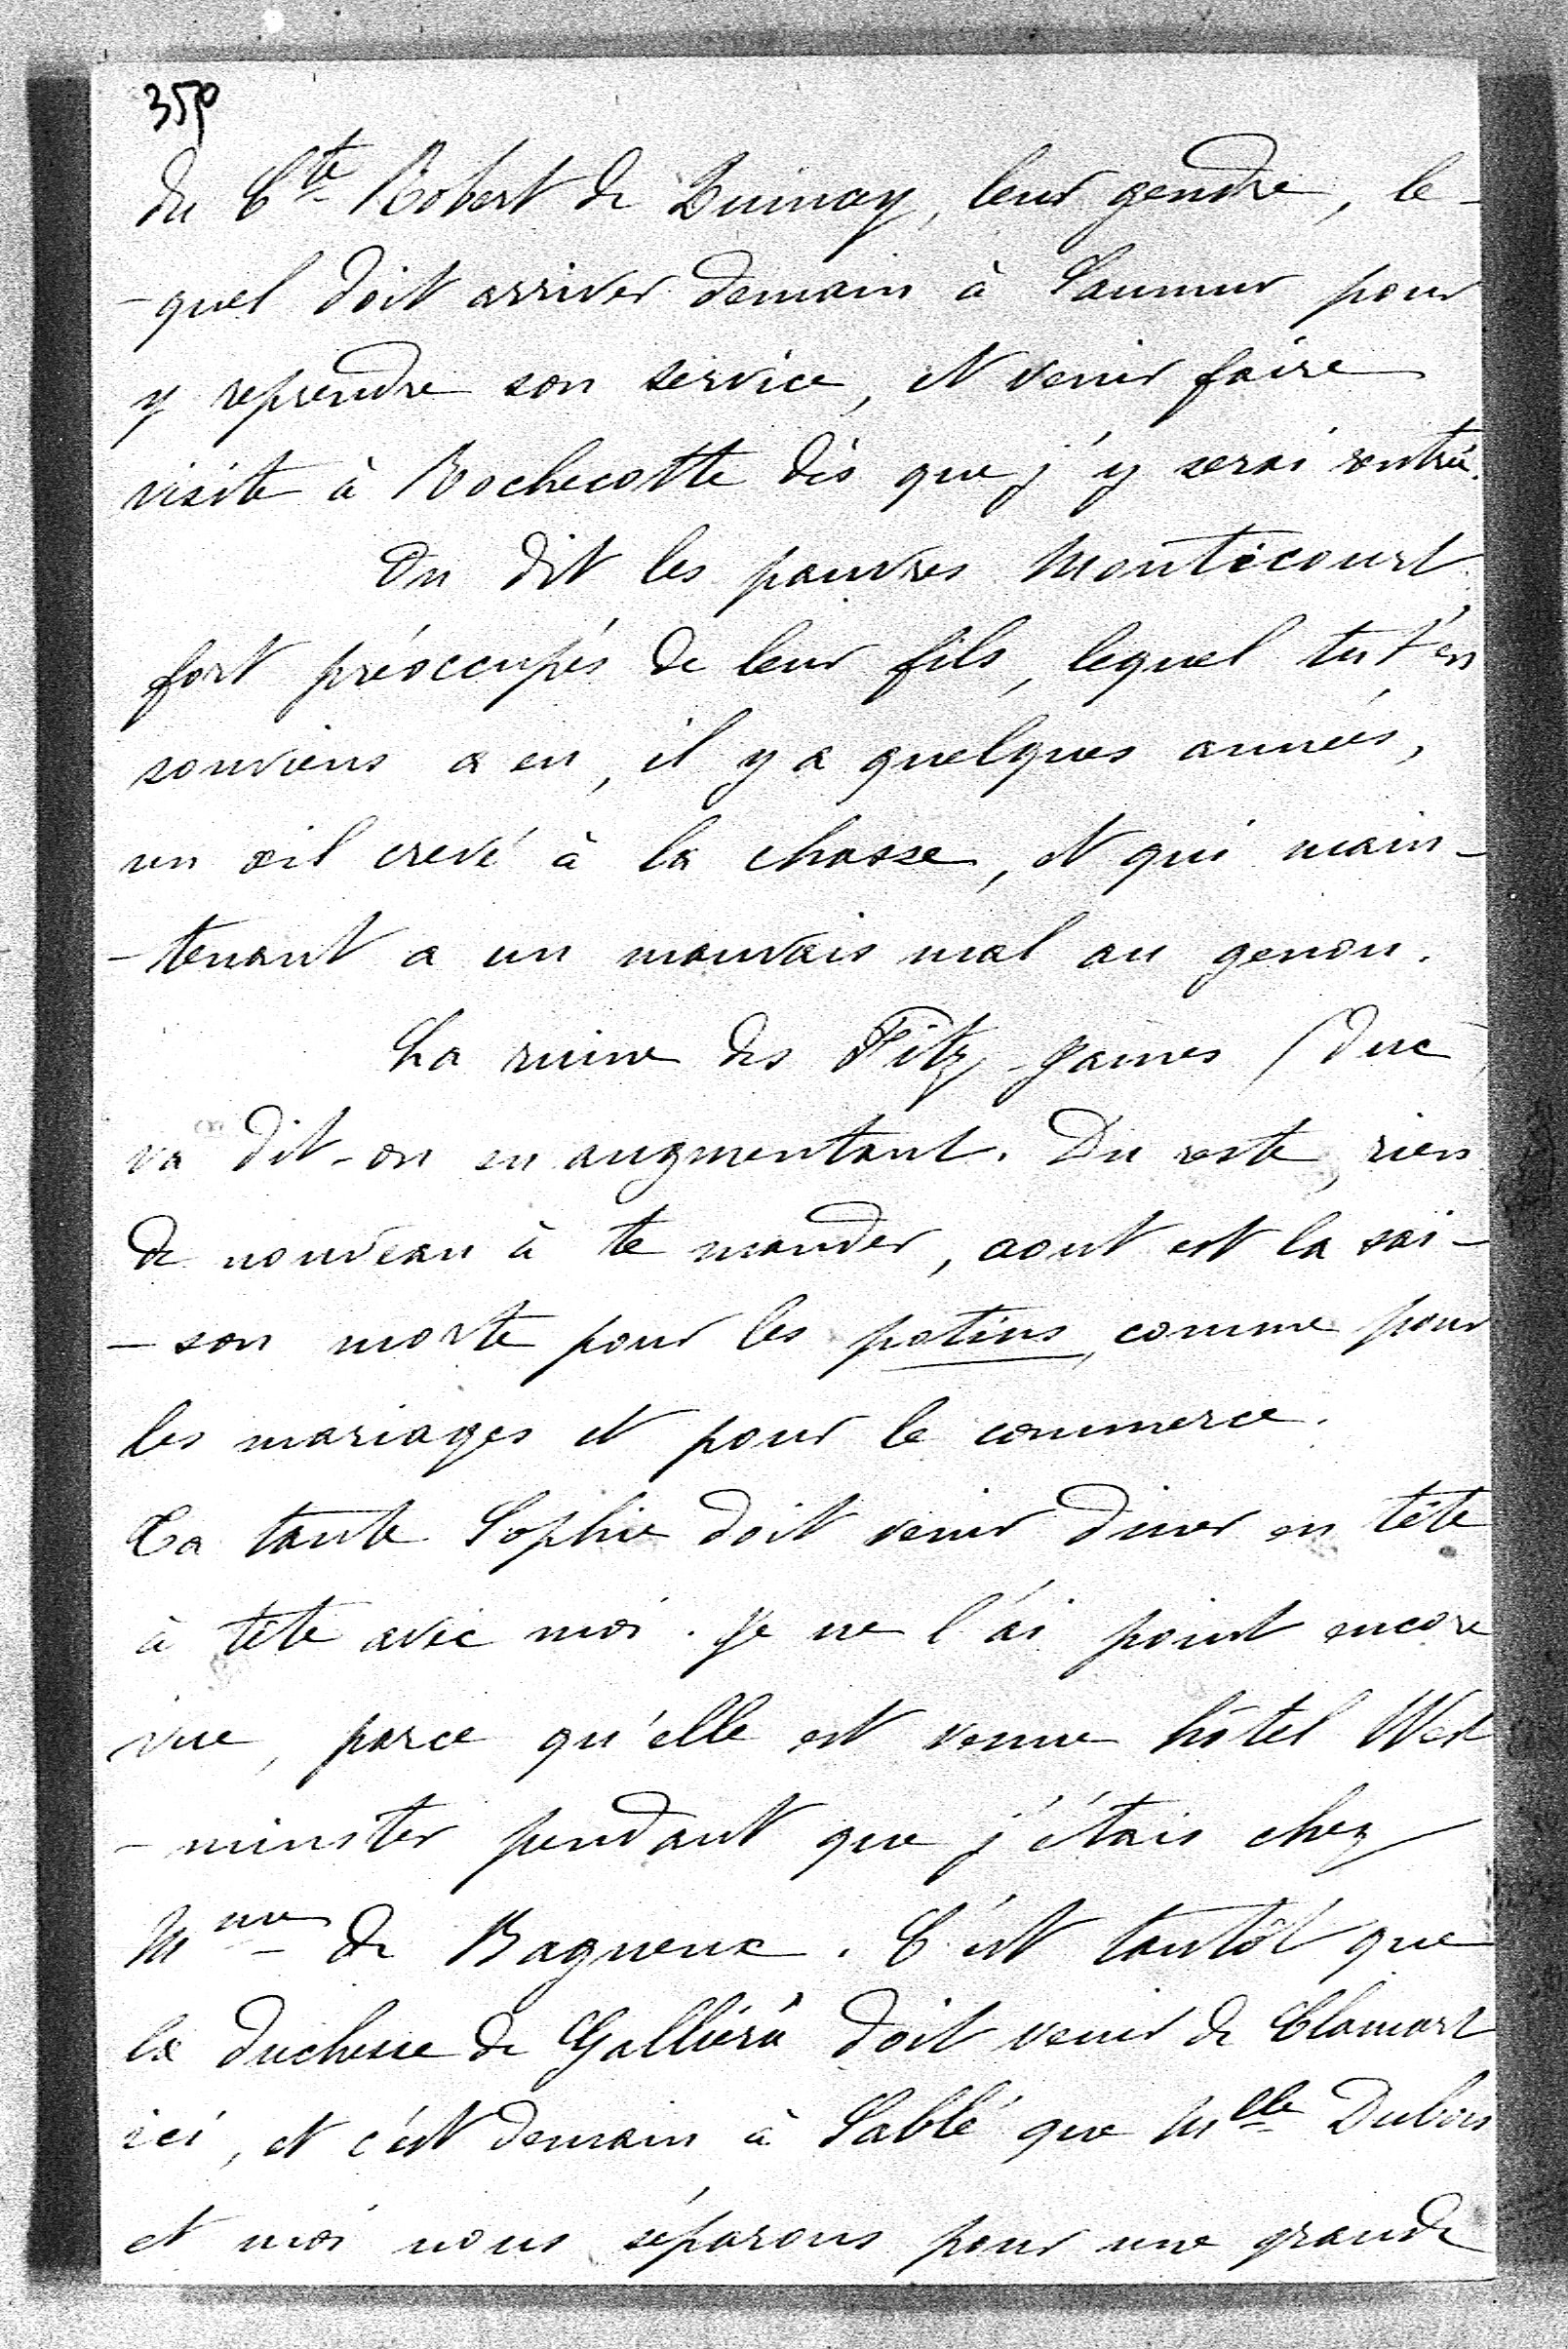 350
du Cte Robert de Buinay, leur gendre, le-
-quel doit arriver demain à Saumur pour
y reprendre son service, et venir faire
visite à Rochecotte dès que j'y serai rentrée.
On dit les pauvres Montécourt
fort préoccupés de leur fils, lequel tu t'en
souviens a eu, il y a quelques années,
un œil crevé à la chasse, et qui main-
-tenant a un mauvais mal au genou.
La ruine des Fitz-James (duc)
va dit-on en augmentant. Du reste, rien
de nouveau à te mander, aout est la sai-
-son morte pour les potins, comme pour
les mariages et pour le commerce.
Ta tante Sophie doit venir diner en tête
à tête avec moi. Je ne l'ai point encore
vue, parce qu'elle est venue hôtel West
-minster pendant que j'étais chez
Mme de Bagneux. C'est tantôt que
la duchesse de Galliéra doit venir de Clamart
ici, et c'est demain à Sablé que Melle Dubois
et moi nous séparons pour une grande